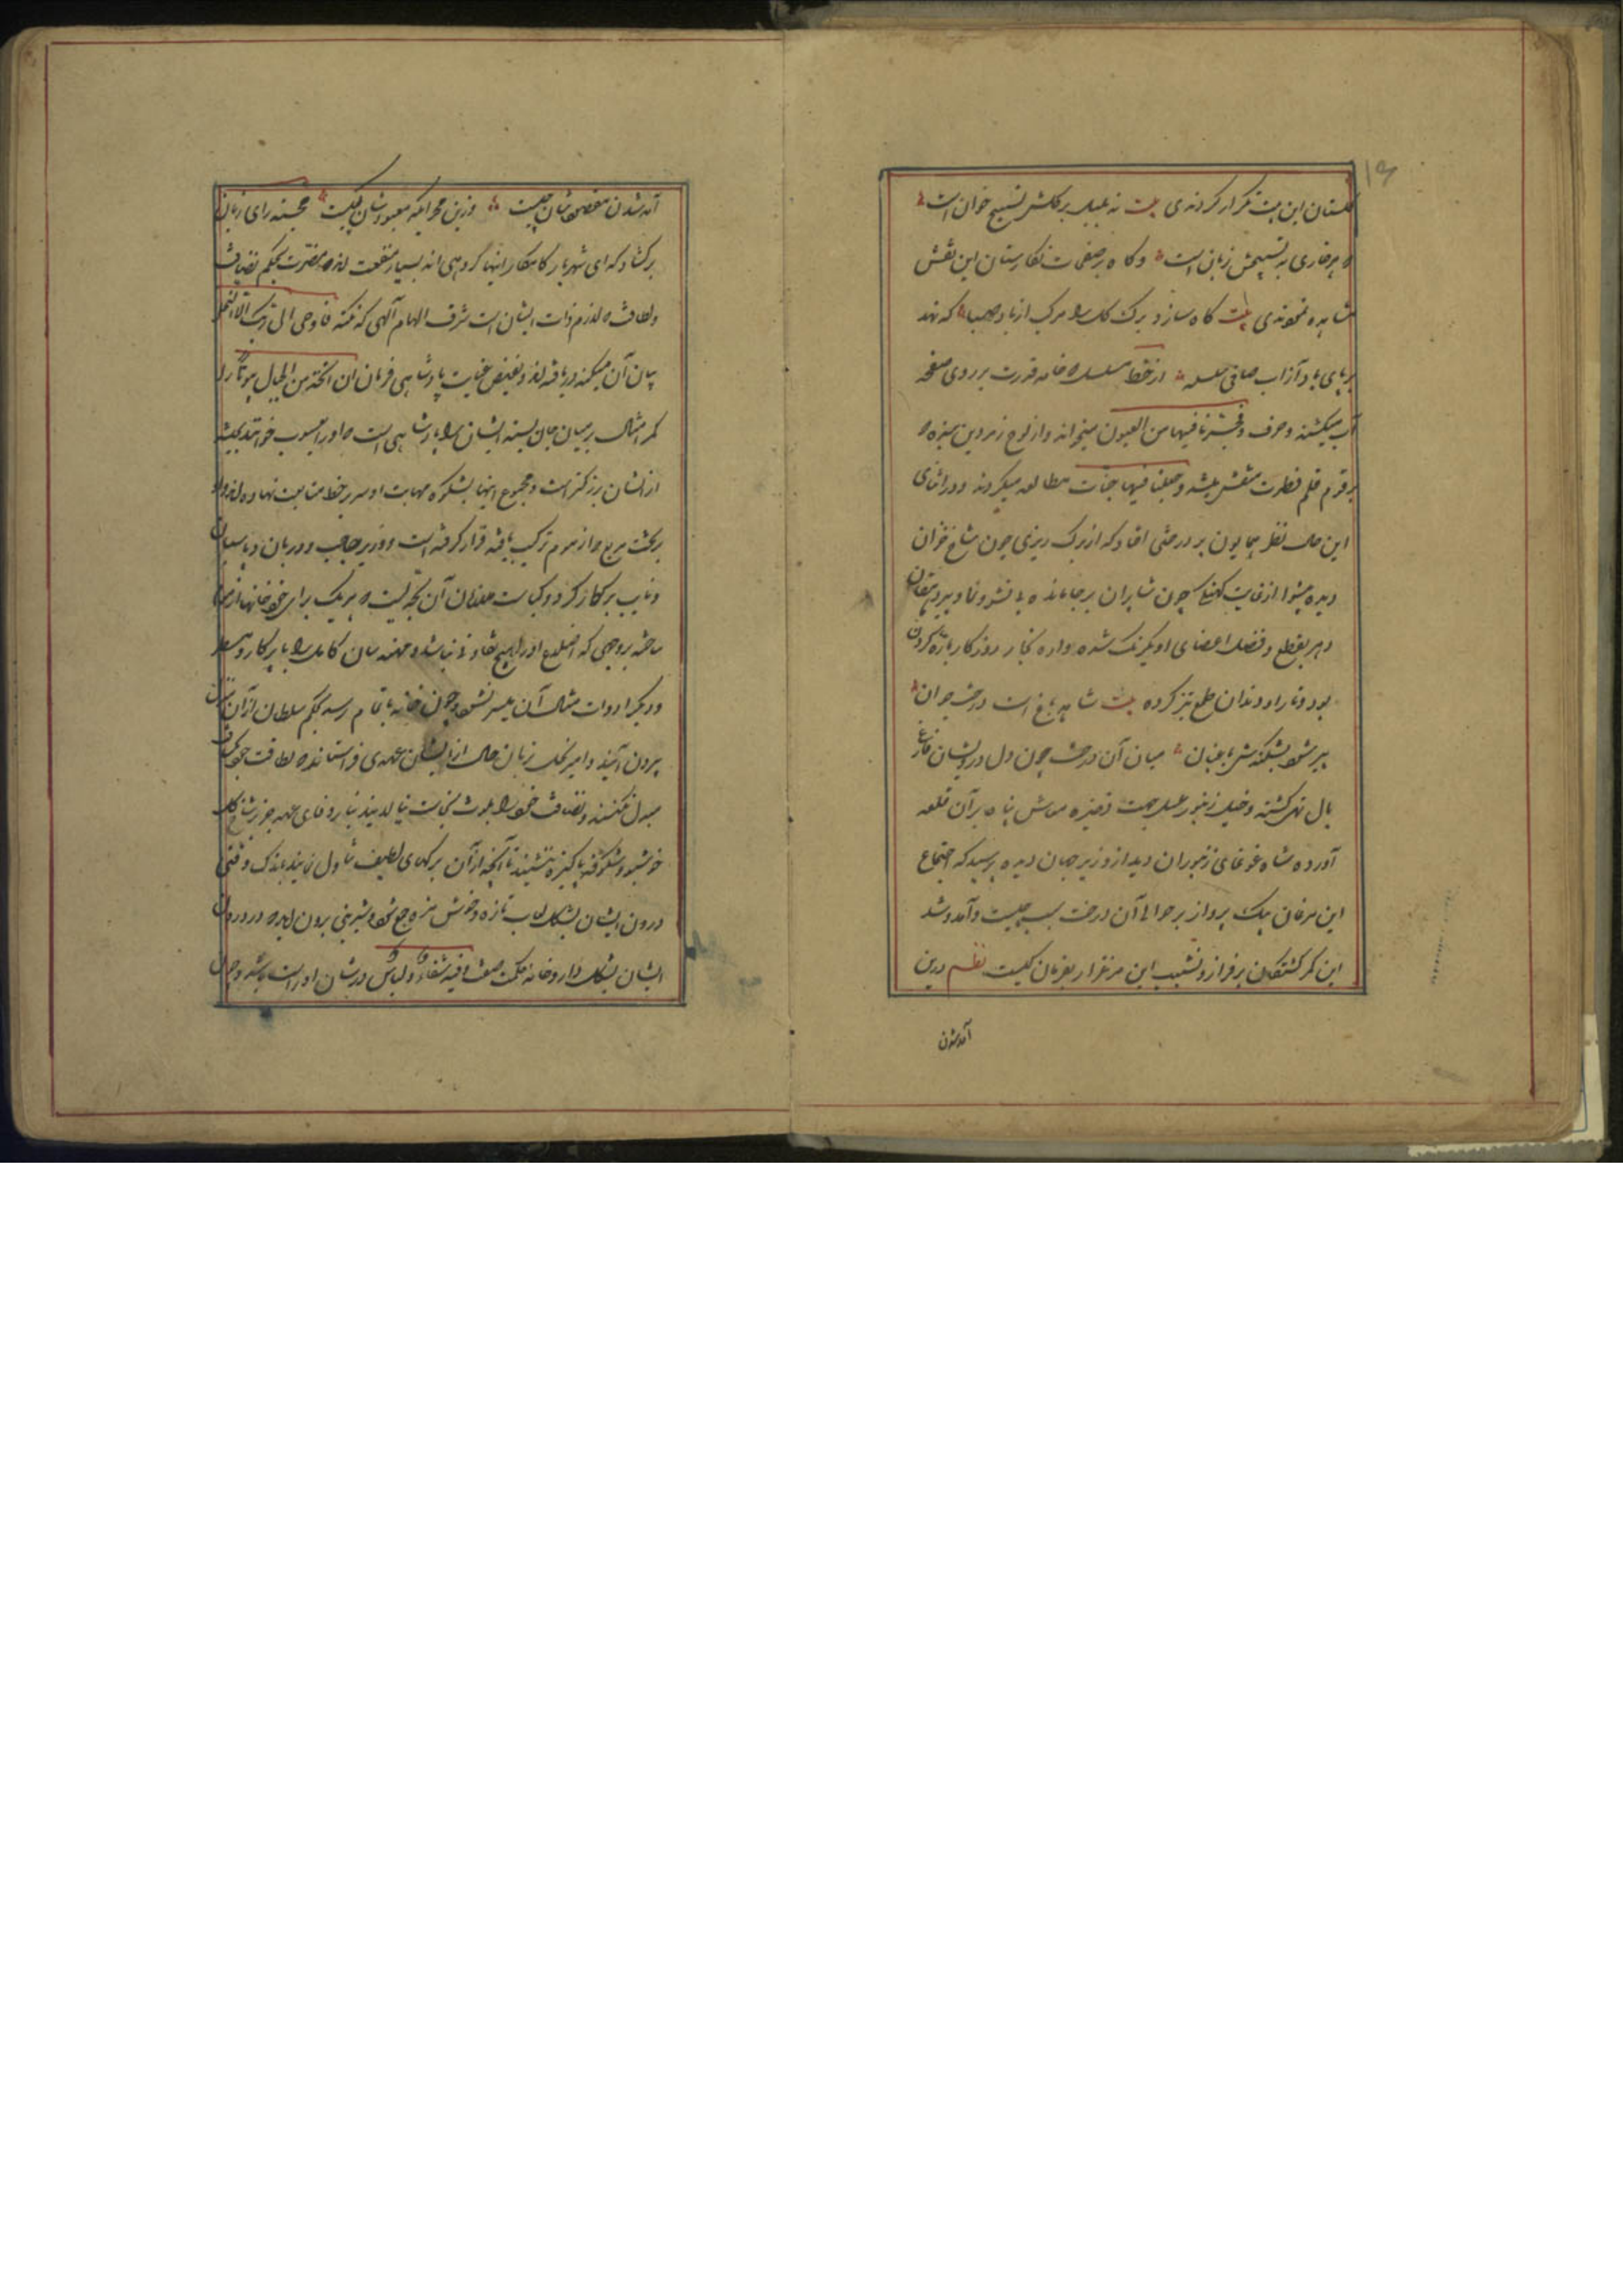 ۱۵
گلستان این بیت تکرار کردندی بیت نه بلبل بر گلش تسبیح خوان است
که هر خاری به تسبیحش زبانی است وگاه بر صفحات نگارستان این نقش
مشاهده نمودندی بیت گاه سازد برک گل را مرکب از باد صبا گه نهد
بر پای باد از آب صافی سلسله از خط مسلسل که خامه قدرت بر روی صفحه
آب میکشند وحرف وفجرنا فیها من العیون میخواند واز لوح زمردین سبزه که
برقم قلم فطرت منقش میشد وجعلنا فیها جنات مطالعه میکردند ودر اثنای
این حال نظر همایون بر درختی افتاد که از برک ریزی چون شاخ خزان
دیده بینوا از غایت کهنگی چون پیران بر جا مانده بی نشو ونما وپیر دهقان
دهر بقطع وفصل اعضای او یکرنک شده واره نجار روزگار بتاره کردن
پود وتار او دندان طمع تیز کرده بیت شاهد باغ است درخت جوان
پیر شود بشکندش باغبان میان آن درخت چون دل درویشان فارغ
بال تهی کشته وخیل زنبور عسل جهت ذخیره معاش پناه بر آن قلعه
آورده شاه غوغای زنبوران دید از وزیر جهان دیده پرسید که اجتماع
این مرغان سبک پرواز بر حوالی آن درخت بسبب چیست وآمد وشد
این کمر بستگان بر فراز ونشیب این مرغزار بفرمان کیست نظم درین
آمدشدن
آمدشدن مقصودشان چیست وزین محرابکه معبودشان کیست خجسته رای زبان
برکشاد که ای شهریار کامکار اینها گروهی اند بسیار منفعت اندک مضرت بحکم نظافت
ولطافت که لازم ذات ایشان است شرف الهام آلهی که نکته فاوحی الی ربک الی النحل
بیان آن میکند دریافته اند وبفیض عنایت پادشاهی فرمان ان اتخذی من الجبال بیوتا را
کمر امتثال بر میان جان بسته ایشان را پادشاهی است که او را یعسوب خوانند بجثه
از ایشان بزرگتر است ومجموع اینها بشکوه مهابت او سر بر خط متابعت نهاده اند واو
بر تخت مربع که از موم ترکیب یافته قرار گرفته است ووزیر وحاجب ودربان وپاسبان
ونایب بر کار کرده وکیاست ملازمان آن بحدیست که هریک برای خود خانهای از موم
ساخته بروجهی که اضلاع او را هیچ تفاوتی نباشد ومهندسان کامل را بی پرکار ومسطر
ودیگر ادوات مثال آن میسر نشود وچون خانه باتمام رسد بحکم سلطان از آن منزل
بیرون آیند وامیر نحل بزبان حال از ایشان عهدی فراستاند که لطافت خود بکثافت
مبدل نکنند ونظافت خود را بلوث نجاست نیالایند بنابر وفای عهد جز بر شاخ گل
خوشبو وشکوفه پاکیزه ننشینند تا آنچه از آن برگهای لطیف تناول نمایند باندک وقتی
درون ایشان بشکل لعاب تازه وخوش مزه جمع شود وشربتی برون آید که در دوران
ایشان بشکل داروخانه حکمت صفت فیه شفاء للناس در شان او راست باشد وچون